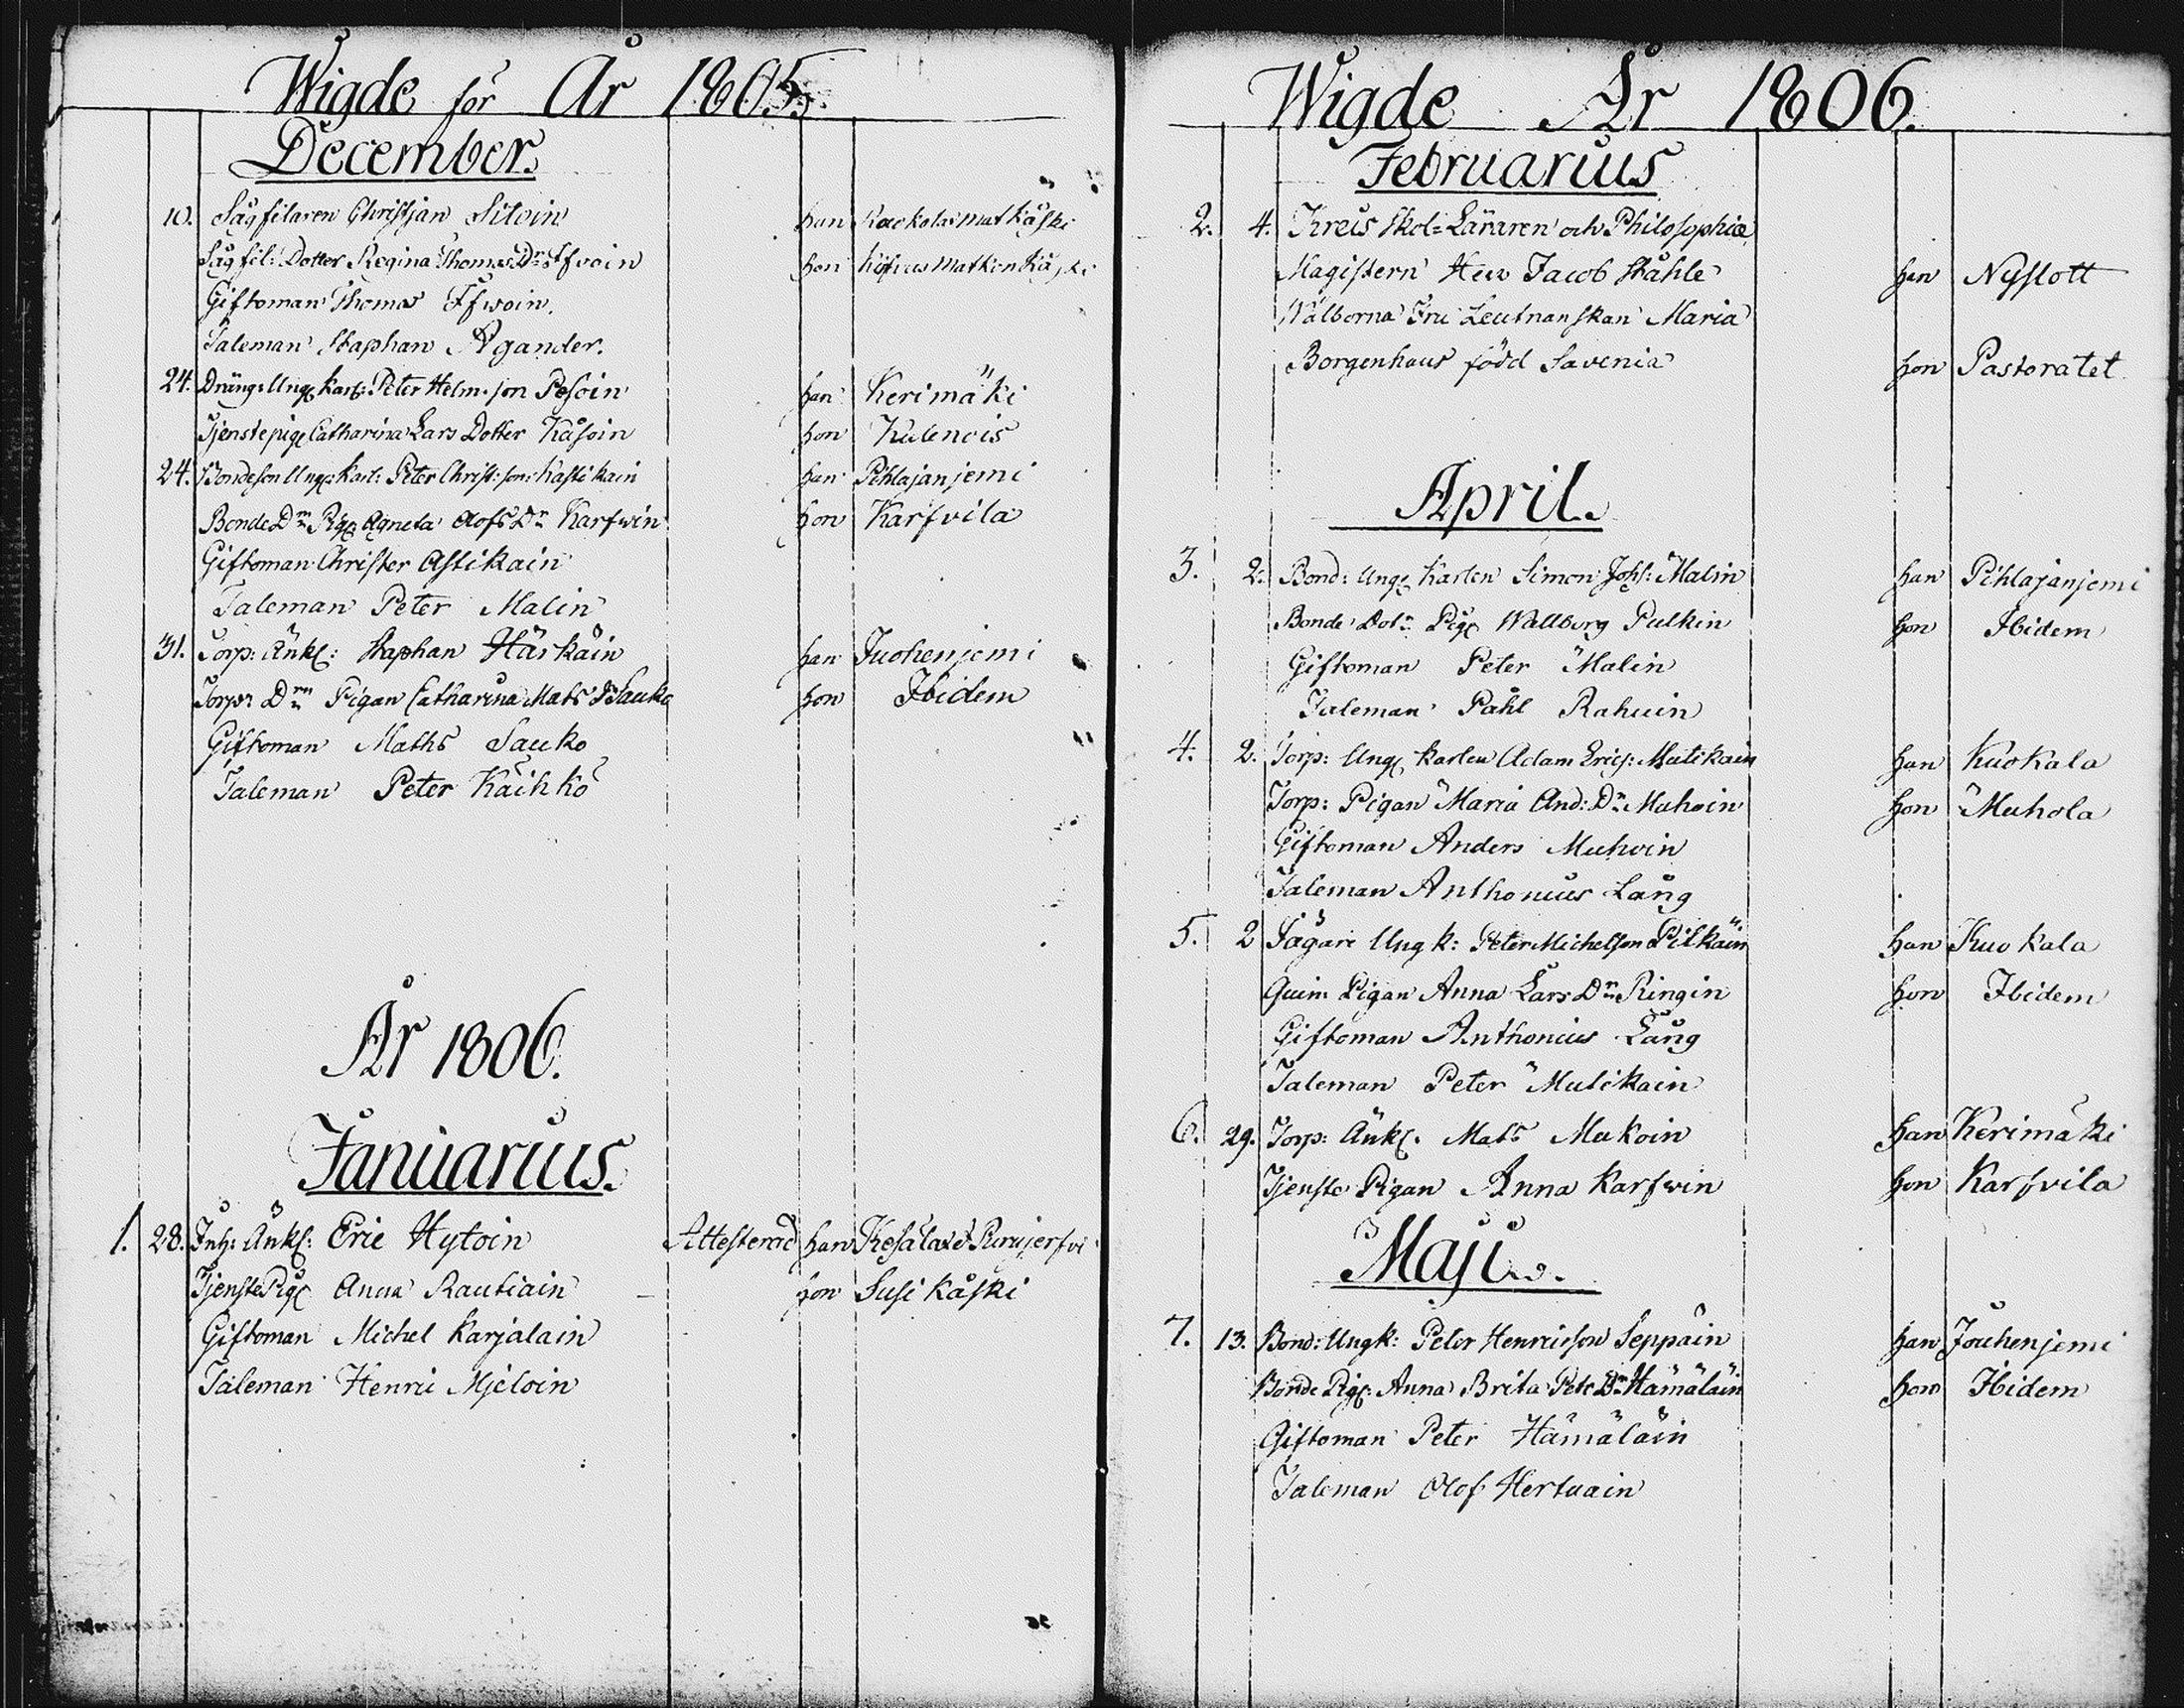 Wigde för År 1805.
December.
10. Sågfilaren Christjan Siloin han
Sågfil: Dotter Regina Thomas Dr Ifvoin hon
Giftoman Thomas Ifwoin.
Taleman Staphan Agander.
24. Dräng: Ung Karl: Peter Helm: son Pesoin han Kerimäki
Tjenstepig Catharina Lars Dotter Käsoin hon Kulenois
24. Bondeson Ung: Karl: Peter Christ: son: Hastikain han Pihlajanjemi
Bonde Drn Pig Agneta Olofs Dr Karfwin hon Karfvila
Giftoman Christer Astikain
Taleman Peter Malin
31. Torp: Änkl: Staphan Härkäin han Juohenjemi
Torp: Drn Pigan Catharina Mats Dr Sauko hon Ibidem
Giftoman Maths Sauko
Taleman Peter Käihkö
År 1806.
Januarius.
1. 28. Inh: Änkl: Eric Hytoin Attesterad han Kesälax
Tjenste Pig Anna Rautiain hon Susikåski
Giftoman Michel Karjalain
Taleman Henric Mjeloin
Wigde År 1806.
Februarius
2. 4. Kreis Skol=Läraren och Philosophiæ
Magistern Herr Jacob Ståhle han Nyslott
Wälborna Fru Leutnanskan Maria
Borgenhaus född Savenia hon Pastoratet
April.
3. 2. Bond: Ung Karlen Simon Joh: Malin han Pihlajanjemi
Bonde Dotr Pig Wallborg Pulkin hon Ibidem
Giftoman Peter Malin
Taleman Påhl Rahuin
4. 2. Torp: Ung Karlen Adam Erics: Mutikain han Kuokala
Torp: Pigan Maria And: Dr Muhoin hon Muhola
Giftoman Anders Muhoin
Taleman Anthonius Lång
5. 2 Jägare Ung k: Peter Michelson Pilkäin han Kuokala
Pigan Anna Lars Dr Ringin hon Ibidem
Giftoman Anthonius Lång
Taleman Peter Mutikain
6. 29. Torp: Änkl. Mats Mukoin han Kerimäki
Tjenste Pigan Anna Karfwin hon Karfvila
Maji.
7. 13. Bond: Ungk: Peter Henricson Seppäin han Jouhenjemi
Bonde Pig: Anna Brita Pete Dr Hämäläin hon Ibidem
Giftoman Peter Hämäläin
Taleman Olof Hertuain